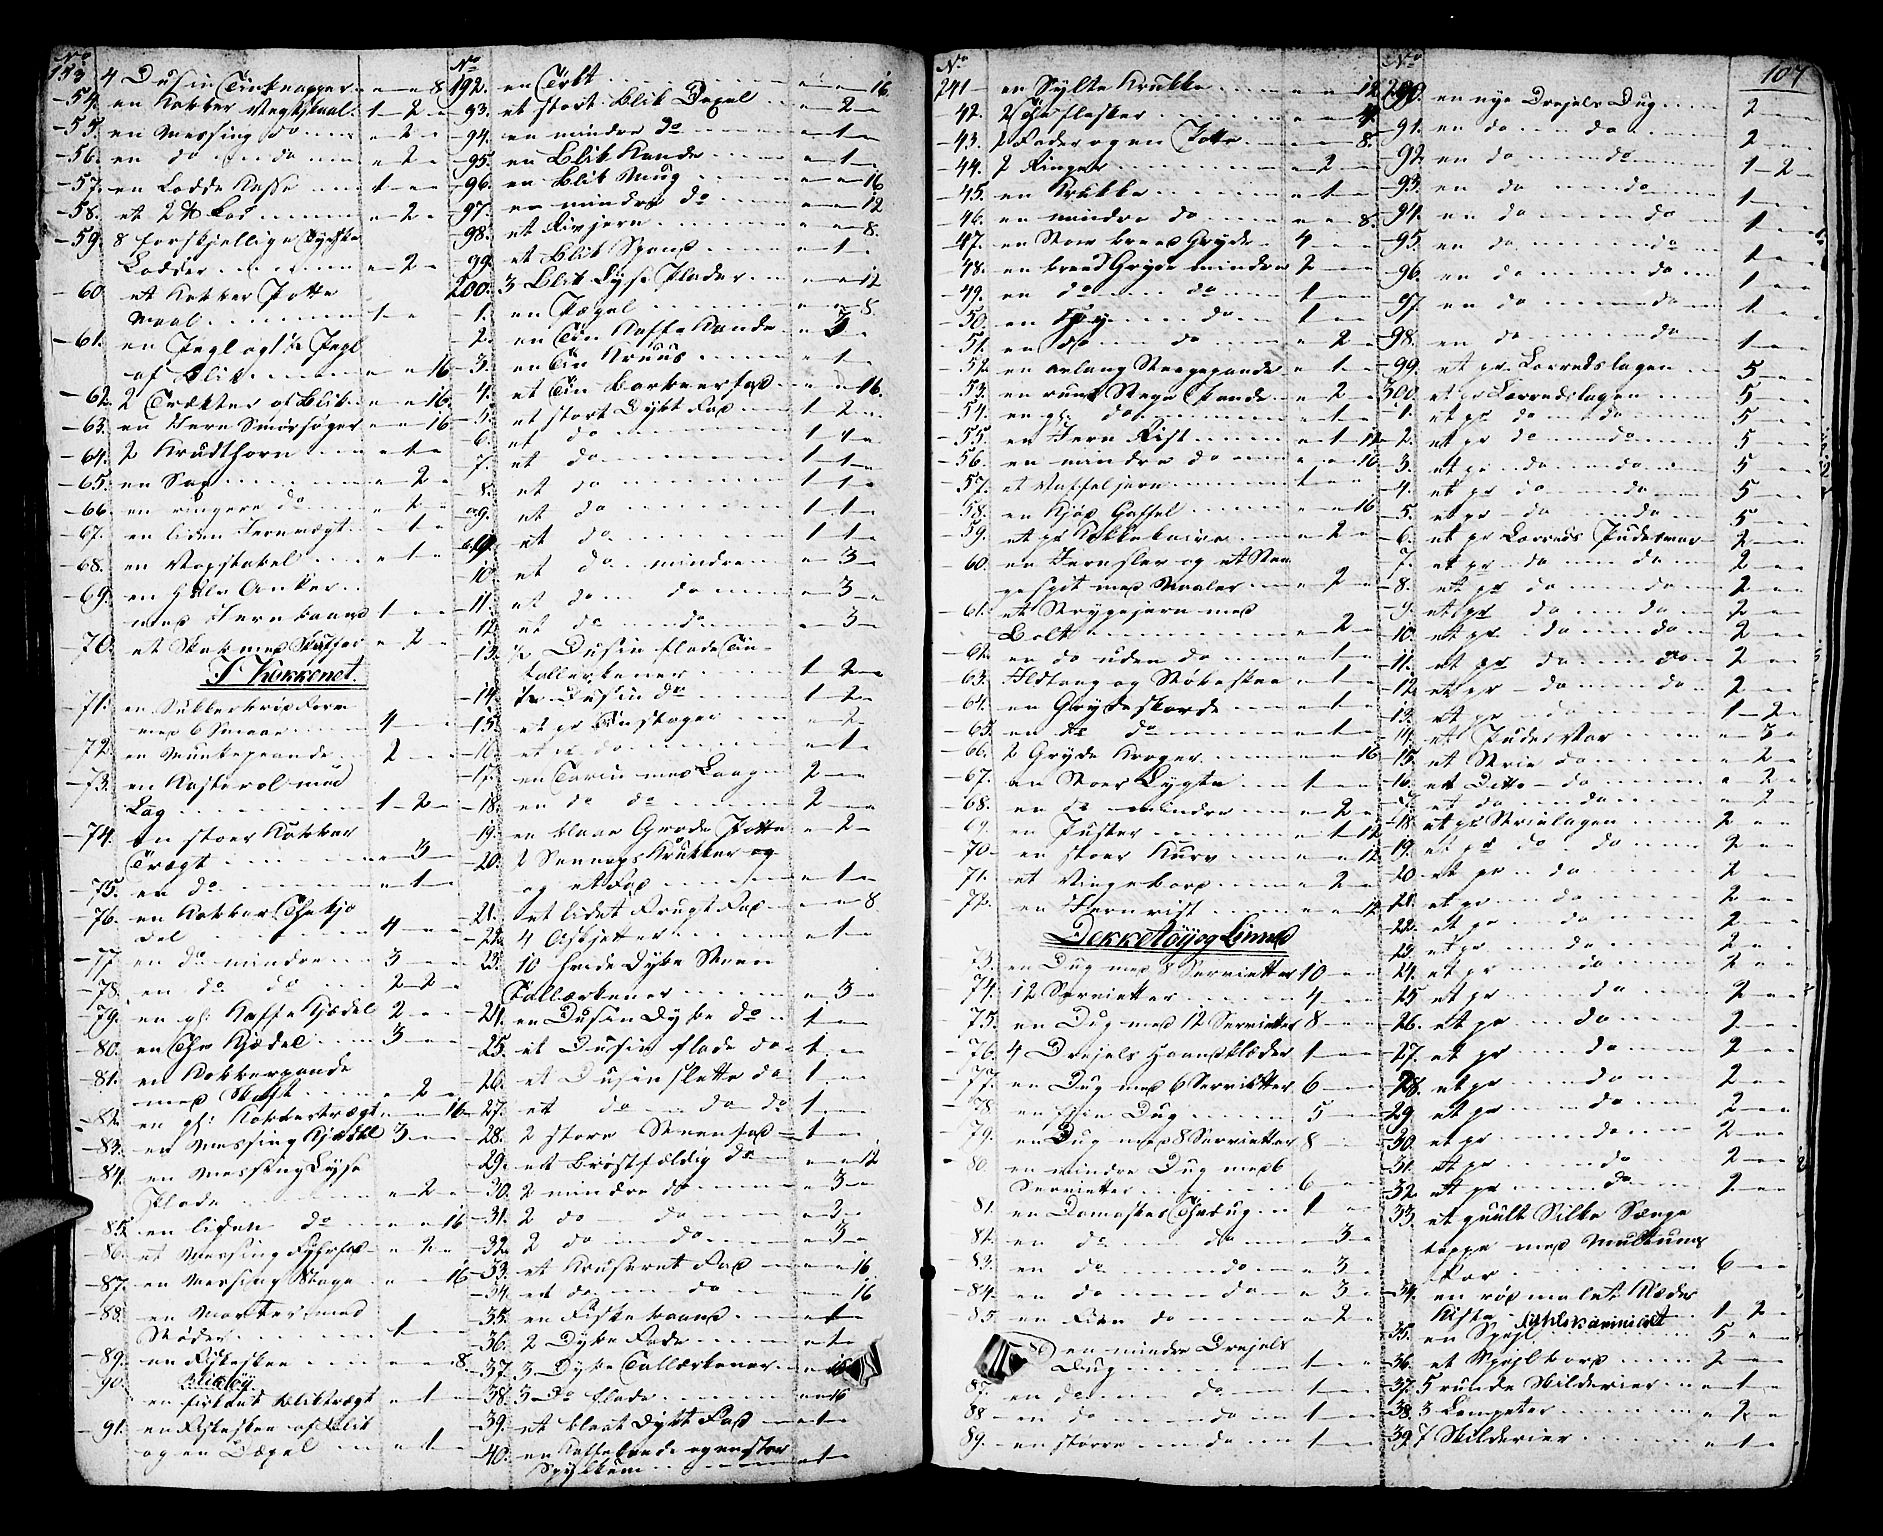 107
No
153. 4 Dusin Tinknapper - " - " - 8
- 54. en Kobber Vegtskaal 1 - 2 -
- 55. en Messing do - 2 -
- 56. en do - do - 2 -
- 57. en Lodde Kasse 1 - -
- 58. et 2 ℔ Lod - 2 -
- 59. 8 forskjellige Tydske
Lodder - 2 -
- 60. et Kobber Potte
Maal 1 -
- 61. en Pegl og 1/2 Pegl
af Blik - - 16
- 62. 2 Trækter af Blik - - 16
- 63. en Jern Smørsøger - - 16
- 64. 2 Krudthorn - 1 -
- 65. en Sag - 2 -
- 66. en ringere do - 1 -
- 67. en liden Jernvægt - 1 -
- 68. en Vogstabel - 1 -
- 69. en Halv Anker
med Jernbaand 1 - -
70. et Skab med Skuffer - 2 -
I Køkkenet.
- 71. en Sukkerbrødform
med 6 Smaae 4 - -
- 72. en Munkepande 2 - -
- 73. en Kasterol med
Lag 1 - 2 -
- 74. en stoer Kobber
Trægt - 3 -
- 75. en do - 1 -
- 76. en Kobber Theekje
del 4 - -
- 77. en do mindre 3 - -
- 78. en do do 2 - 2 -
- 79. en gl: Kaffe Kjædel 2 - -
- 80. en The Kjædel 3 - -
- 81. en Kobberpande
med Skaft - 2 -
- 82. en gl: Kobbertrægt - - 16
- 83. en Messing Kjædel 3 - -
- 84. en Messing Lyse
Plade - 2 -
- 85. en liden do - - 16
- 86. et Messing Fyrfad - 2 -
- 87. en Messing Stage - - 16
- 88. en Morter med
Støder 1 - -
- 89. en Fiskeskee - - 8
Bliktøy
90. en firkant Bliktrægt - 1 -
- 91. en Fiskeskee af Blik
og en Dægel - 1 -
No
192. en Tørkl - - 16
93. et stort Blik Degel - 2 -
94. en mindre do - 1 -
95. en Blik Kande - 1 -
96. en Blik Muug - - 16
97. en mindre do - - 12
98. et Rivjern - - 8
99. et Blik Spand - 1 -
200. 3 Blik Lyse Plader - - 12
- 1. en Dægel - - 8
- 2. en Tin Kaffe Kande - 3 -
- 3. en Tin Kruus - 1 -
- 4. et Tin Barbeerfad - - 16
- 5. et stort Dybt Fad 1 2 -
6. et do 1 1 -
7. et do 1 1 -
8. et do 1 1 -
9. et do 1 1 -
et do 1 1 -
10. et do mindre - 3 -
- 11. et do do - 3 -
- 12. et do do - 3 -
- 13. 1/2 Dusin flade Tin-
tallerkener 1 2 -
- 14. 1/2 Dusin do 1 2 -
- 15. et pr Tinstager - 2 -
- 16. et pr do - 1 -
- 17. en Tarin med Laag 2 - -
- 18. en do do 2 - -
19. en blaae Grøde Potte - 2 -
20. 2 Senneps Krukker og
og et Fad - 1 -
21. et lidet Frugt Fad - - 8
- 22. 4 Asjetter - 1 -
- 23. 10 hvide Dybe Steen
Tallærkener - 3 -
- 24. en Dusin Dybe do 1 - -
- 25. et Dusin flade do 1 - -
- 26. et Dusin slette do 1 - -
- 27. et do do do 1 - -
- 28. 2 store Steenfad 1 - -
- 29. et brøstfældig do - - 12
- 30. 2 mindre do - 3 -
- 31. 2 do do - 3 -
- 32. 2 do do - 3 -
- 33. et Kruseret Fad - - 16
- 34. et do do - - 16
- 35. en Fiskespaand - 1 -
- 36. 2 Dybe Fade - 1 -
- 37. 3 Dybe Tallærkener - - 16
- 38. 3 Do flade - - 16
39. et blaat Dybt Fad - 1 -
40. en Kaffekande og en stor
Spølkum - 1 -
No
241 - en Sylte Krukke - - 12
- 42. 2 Øhl flasker - - 4
- 43. 2 Fader og en Potte - - 8
- 44. 2 Ringer - 2 -
- 45. en Krukke - 1 -
- 46. en mindre do - - 8
- 47. en Stor breed Gryde 4 - -
- 48. en breed Gryde mindre 2 - -
- 49. en do do 1 - -
- 50. en høy do 1 - -
- 51. en do do - 2 -
- 52. en avlang Stegepande - 1 -
- 53. en rund Stege Pande - 2 -
- 54. en gl. do - 1 -
- 55. en Jern Rist - 1 12
- 56. en mindre do - - 16
- 57. et Vaffeljern 1 - -
- 58. en Kjød Gaffel - - 16
- 59. et pr Kakkebaive - 2 -
60. en Jernsler og et Ste
gespit med Naaler - 2 -
61. et Strygejern med
Bolt - 2 -
- 62. en do uden do - 1 -
- 63. Ildtang og Støbeskee - 1 -
- 64. en Grydeskorde - 1 -
- 65. en do do - 1 -
- 66. 2 Gryde Kroger - - 16
- 67. en Stoer Lygte 1 - -
68. en do mindre - 2 -
69. en Juster - 1 12
- 70 - en stoer Kurv - - 12
- 71. et Vingebord - 2 -
- 72. en Jernrist - - 12
Dekketøy og Linned
73. en Dug med 8 Servietter 10 - -
- 74. 12 Servietter 4 - -
- 75. en Dug med 12 Servietter 8 - -
- 76. 4 Drejels Haandklæder 1 - -
- 77. en Dug med 6 Servietter 6 - -
- 78. en fiin Dug 5 - -
- 79. en Dug med 8 Servietter 8 - -
- 80. en mindre Dug med 6
Servietter 6 - -
81. en Damaskes Thedug 1 - -
- 82. en do do - 3 -
- 83. en do do - 3 -
- 84. en do do - 3 -
- 85. en Fiin do - 2 -
en mindre Drejels
Dug 1 - -
- 87. en do do 1 - -
- 88 - en do do 1 - -
- 89. en større do 1 - -
No
290. en nye Drejels Dug 2 - -
91. en do do 2 - -
92 en do do 1 - 2 -
- 93. en do do 1 - -
- 94. en do do 1 - -
- 95. en do do 1 - -
- 96. en do do 1 - -
- 97. en do do 1 - -
- 98. en do do 1 - -
- 99. et pr Lærredslagen 5 - -
300. et pr Lærredslagen 5 - -
- 1. et pr do do 5 - -
- 2. et pr do do 5 - -
- 3. et pr do do 5 - -
- 4. et pr do do 5 - -
- 5. et pr do do 5 - -
- 6. et pr Lærreds Pudevaar 2 - -
7. et pr do do 2 - -
- 8. et pr do do 2 - -
- 9. et pr do do 2 - -
- 10. et pr do do 2 - -
- 11. et pr do do 2 - -
- 12. et pr do do 2 - -
- 13. et pr do 1 - 2 -
- 14. et Pudevar - 3 -
- 15. et Strie do - 2 -
- 16. et Ditto do - 2 -
- 17. et do do - 2 -
- 18. et pr Strielagen 2 - -
- 19. et pr do do 2 - -
20. et pr do 2 - -
- 21. et pr do 2 - -
- 22. et pr do 2 - -
- 23. et pr do 2 - -
- 24. et pr do 2 - -
- 25. et pr do 2 - -
- 26. et pr do 2 - -
- 27. et pr do 2 - -
- 28. et pr do 2 - -
- 29. et pr do 2 - -
- 30. et pr do 2 - -
- 31. et pr do 2 - -
- 32. et pr do 2 - -
- 33. et guult Silke Sænge
teppe med Multums
For 6 - -
- 34. en rød malet Klæder
Kiste 1 - 2 -
- 35. en Spejl 5 - -
- 36. et Spejlbord 2 - -
- 37. 5 runde Skilderier - 1 -
- 38. 3 Lampeter - 2 -
- 39. 7 Skilderier - 1 -